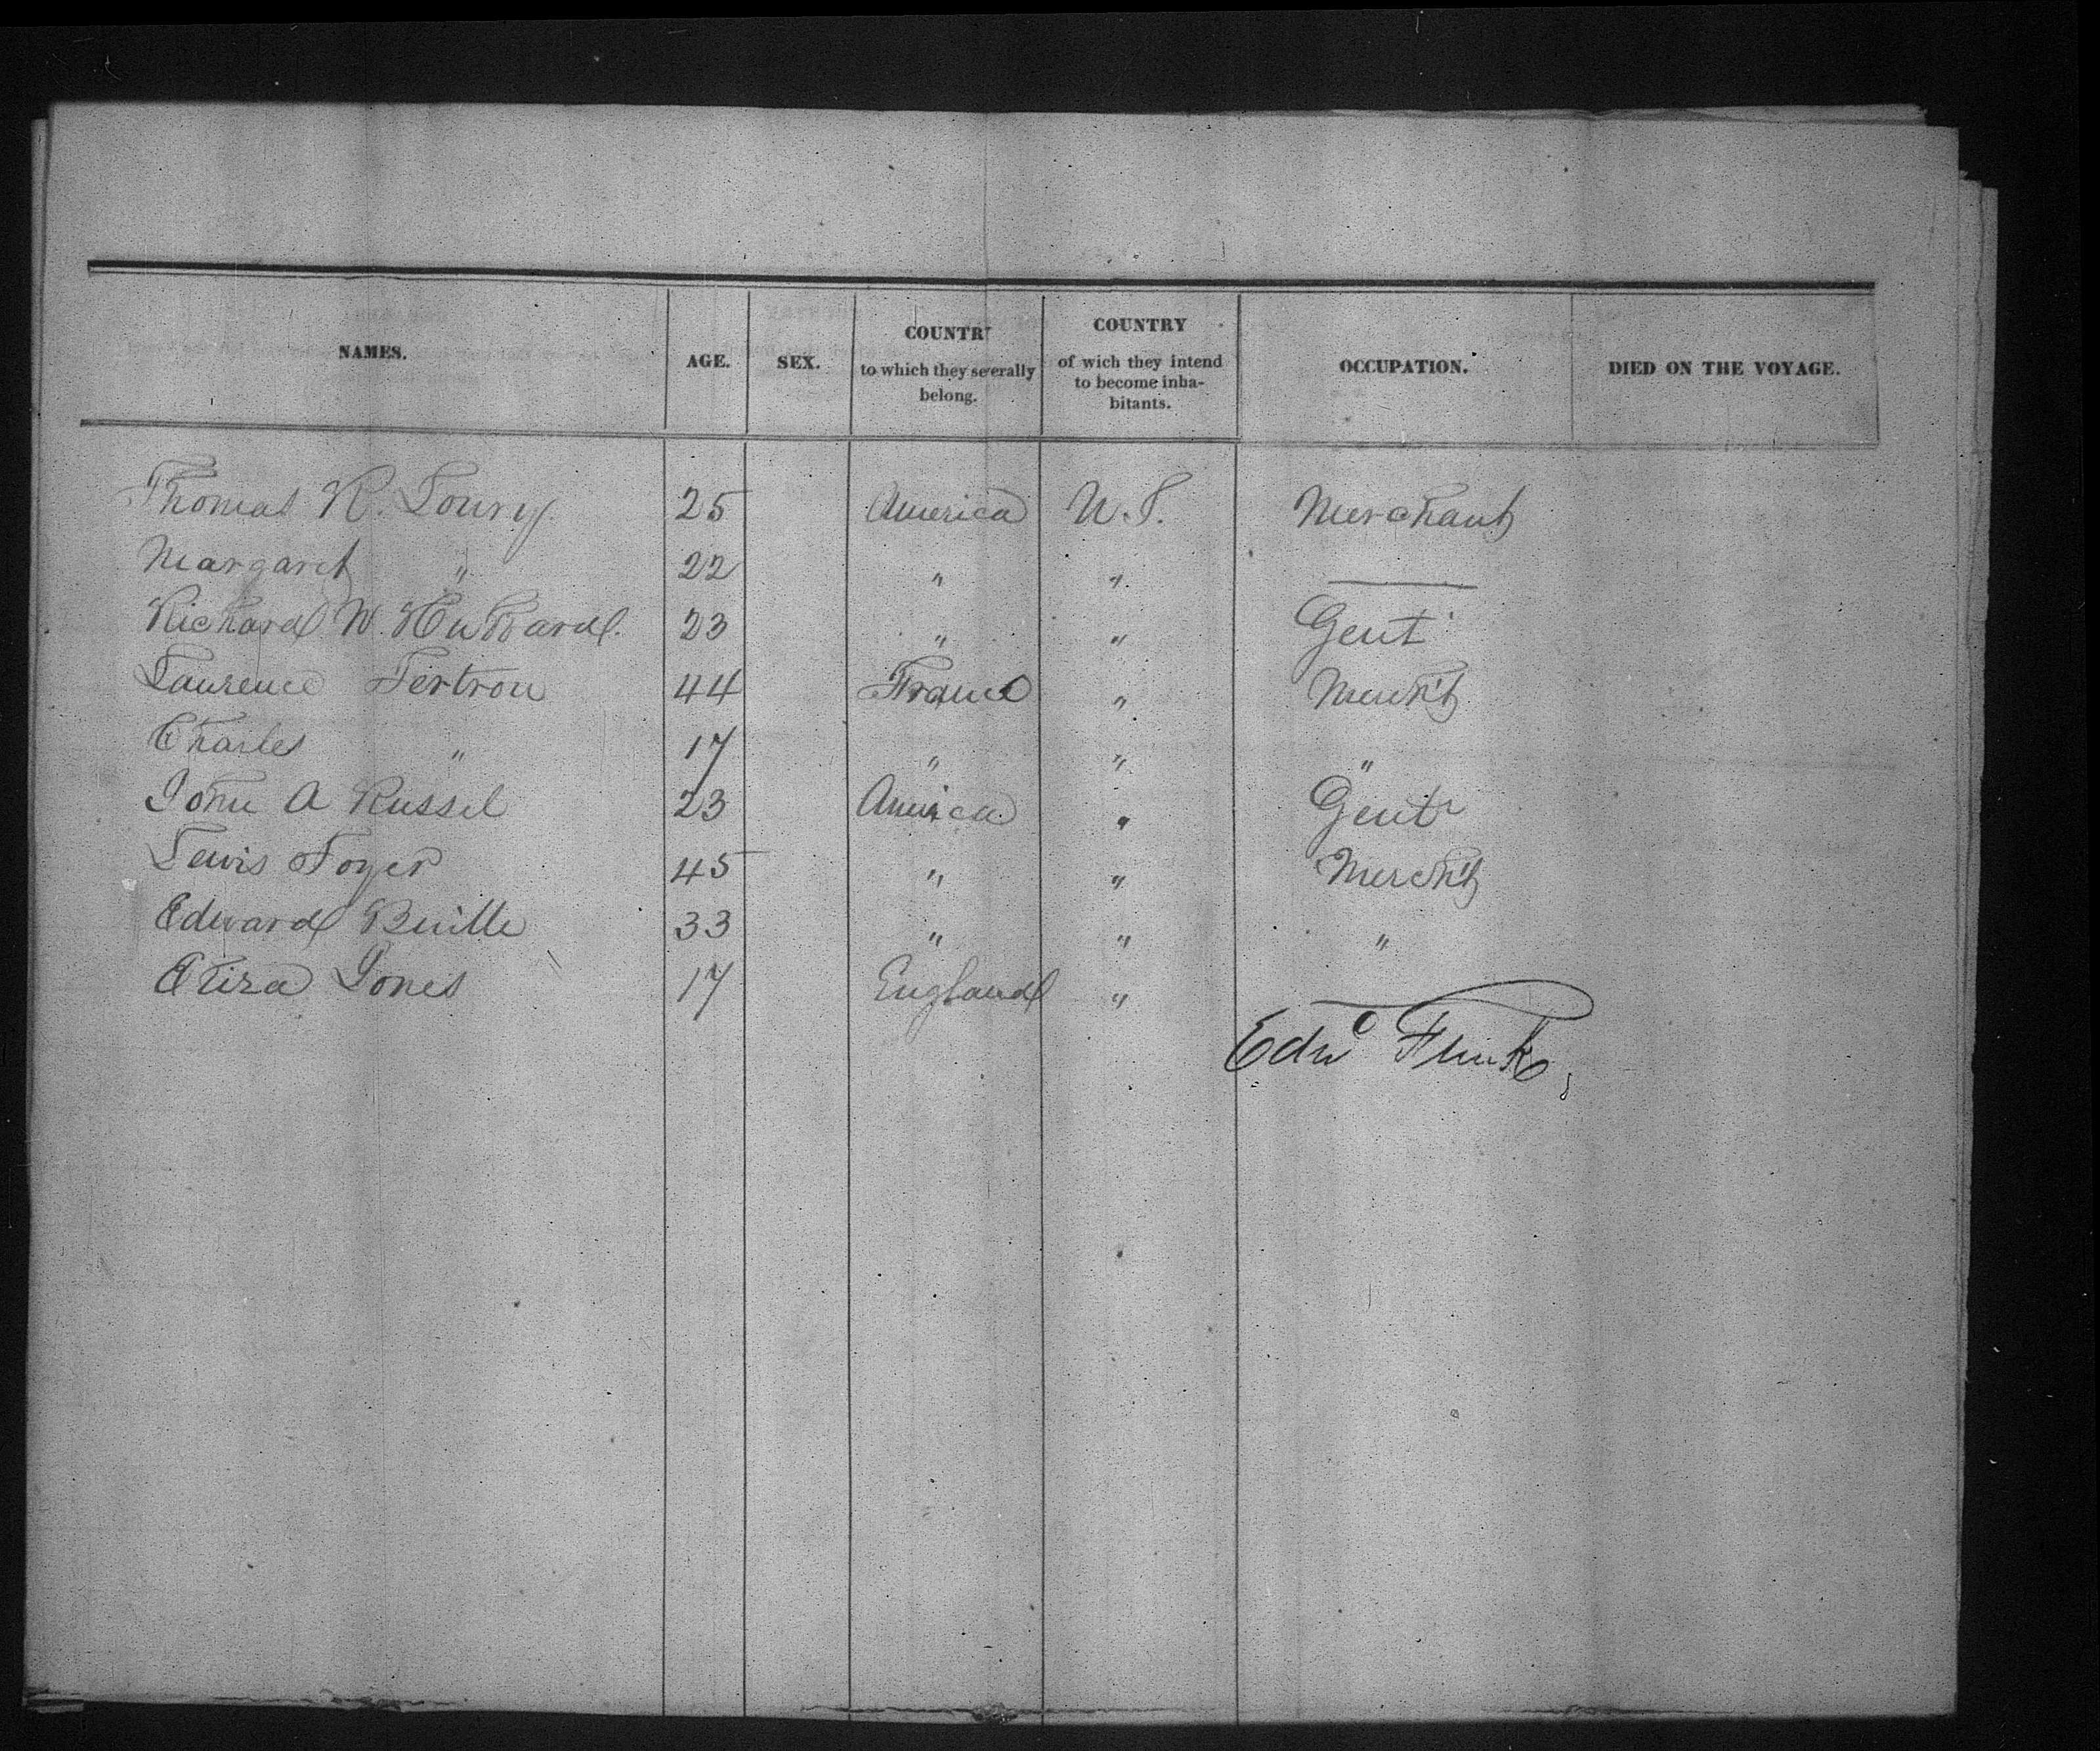 NAMES. AGE. SEX. COUNTRY to which they severally belong. COUNTRY of wich they intend to become inhabitants. OCCUPATION. DIED ON THE VOYAGE.
Thomas R. Loury. 25 America U.S. Merchant
Margaret " 22 " " —
Richard W. Hubbard. 23 " " Gent
Laurence Tertrou 44 France " Mercht
Charles " 17 " " "
John A Russel 23 America " Gent
Lewis 45 " " Mercht
Edward 33 " " "
Eliza Jones 17 England " —
Edwd Funk